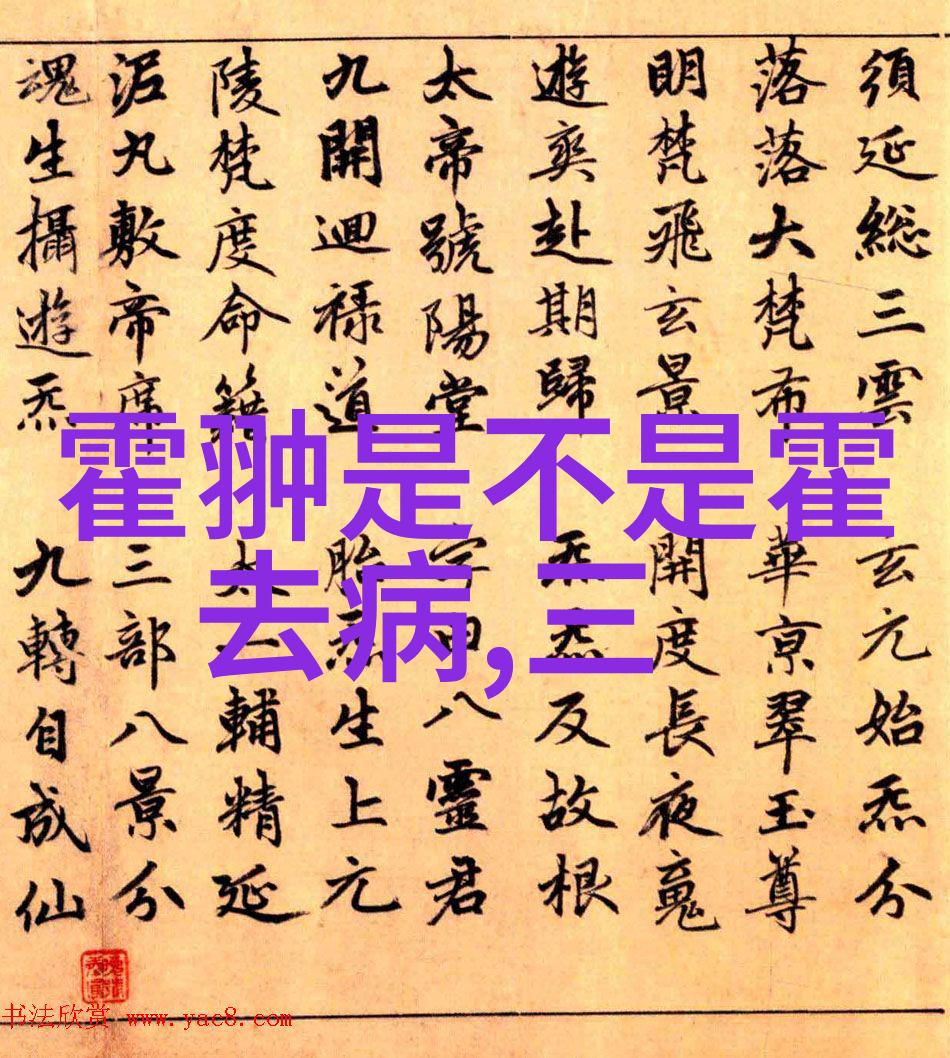 須延総三雲 玄元始炁分
落落大梵布 華亰翠玉尊
明梵飛玄景 開度長夜魂
遊爽赴期歸 炁炁反故根
太帝號陽堂 八靈君
九開迴祿道 胎炁生上元
陵梵度命籍 太一輔精延
泥丸敷帝席 三部八景分
魂生攝遊炁 九轉自成仙
霍翀是不是霍
去病,三
书法欣赏 www.yac8.com